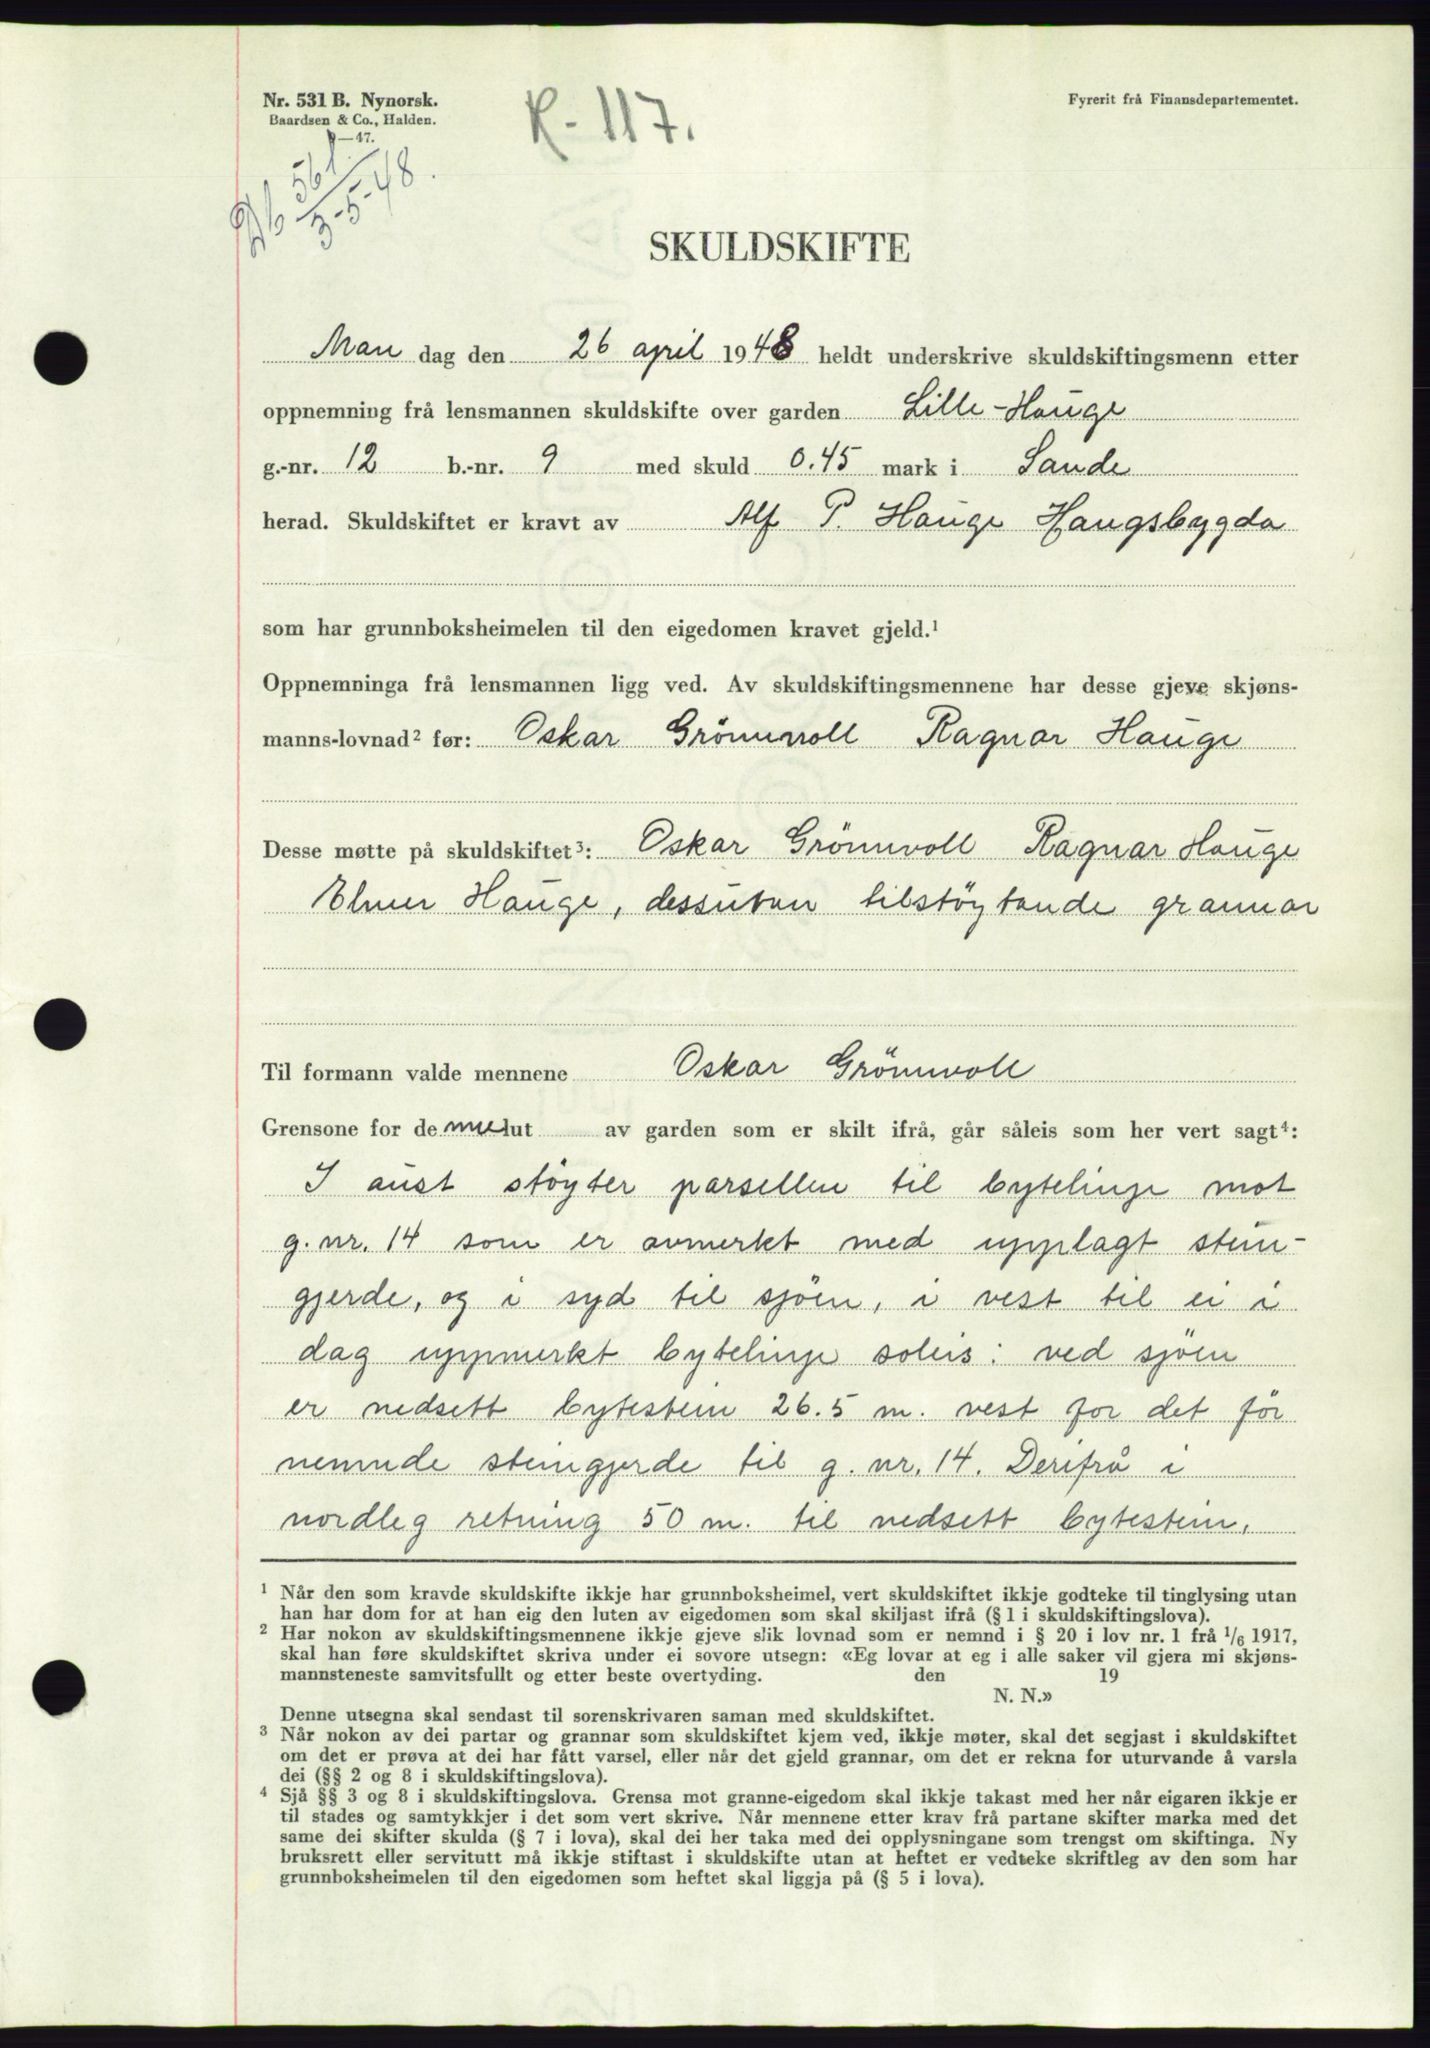 Nr. 531 B. Nynorsk.
Baardsen & Co., Halden.
9—47.
Fyrerit frå Finansdepartementet.
K - 117.
Db 561
3-5-48.
SKULDSKIFTE
Man dag den 26 april 1948 heldt underskrive skuldskiftingsmenn etter
oppnemning frå lensmannen skuldskifte over garden Lille-Hauge
g.-nr. 12 b.-nr. 9 med skuld 0.45 mark i Sande
herad. Skuldskiftet er kravt av Alf P. Hauge Haugsbygda
som har grunnboksheimelen til den eigedomen kravet gjeld.¹
Oppnemninga frå lensmannen ligg ved. Av skuldskiftingsmennene har desse gjeve skjøns-
manns-lovnad² før: Oskar Grönnvoll Ragnar Hauge
Desse møtte på skuldskiftet³: Oskar Grönnvoll Ragnar Hauge
Elmer Hauge, dessutan tilstöytande grannar
Til formann valde mennene Oskar Grönnvoll
Grensone for denne lut av garden som er skilt ifrå, går såleis som her vert sagt⁴:
I aust stöyter parsellen til bytelinje mot
g. nr. 14 som er avmerkt med upplagt stein-
gjerde, og i syd til sjöen, i vest til ei i
dag uppmerkt bytelinje soleis: ved sjöen
er nedsett bytestein 26.5 m. vest for det för
nemnde steingjerde til g. nr. 14. Derifrå i
nordleg retning 50 m. til nedsett bytestein.
¹ Når den som kravde skuldskifte ikkje har grunnboksheimel, vert skuldskiftet ikkje godteke til tinglysing utan
han har dom for at han eig den luten av eigedomen som skal skiljast ifrå (§ 1 i skuldskiftingslova).
² Har nokon av skuldskiftingsmennene ikkje gjeve slik lovnad som er nemnd i § 20 i lov nr. 1 frå 1/6 1917,
skal han føre skuldskiftet skriva under ei sovore utsegn: «Eg lovar at eg i alle saker vil gjera mi skjøns-
mannsteneste samvitsfullt og etter beste overtyding. den 19
N. N.»
Denne utsegna skal sendast til sorenskrivaren saman med skuldskiftet.
³ Når nokon av dei partar og grannar som skuldskiftet kjem ved, ikkje møter, skal det segjast i skuldskiftet
om det er prøva at dei har fått varsel, eller når det gjeld grannar, om det er rekna for uturvande å varsla
dei (§§ 2 og 8 i skuldskiftingslova).
⁴ Sjå §§ 3 og 8 i skuldskiftingslova. Grensa mot granne-eigedom skal ikkje takast med her når eigaren ikkje er
til stades og samtykkjer i det som vert skrive. Når mennene etter krav frå partane skifter marka med det
same dei skifter skulda (§ 7 i lova), skal dei her taka med dei opplysningane som trengst om skiftinga. Ny
bruksrett eller servitutt må ikkje stiftast i skuldskifte utan at heftet er vedteke skriftleg av den som har
grunnboksheimelen til den eigedomen som heftet skal liggja på (§ 5 i lova).